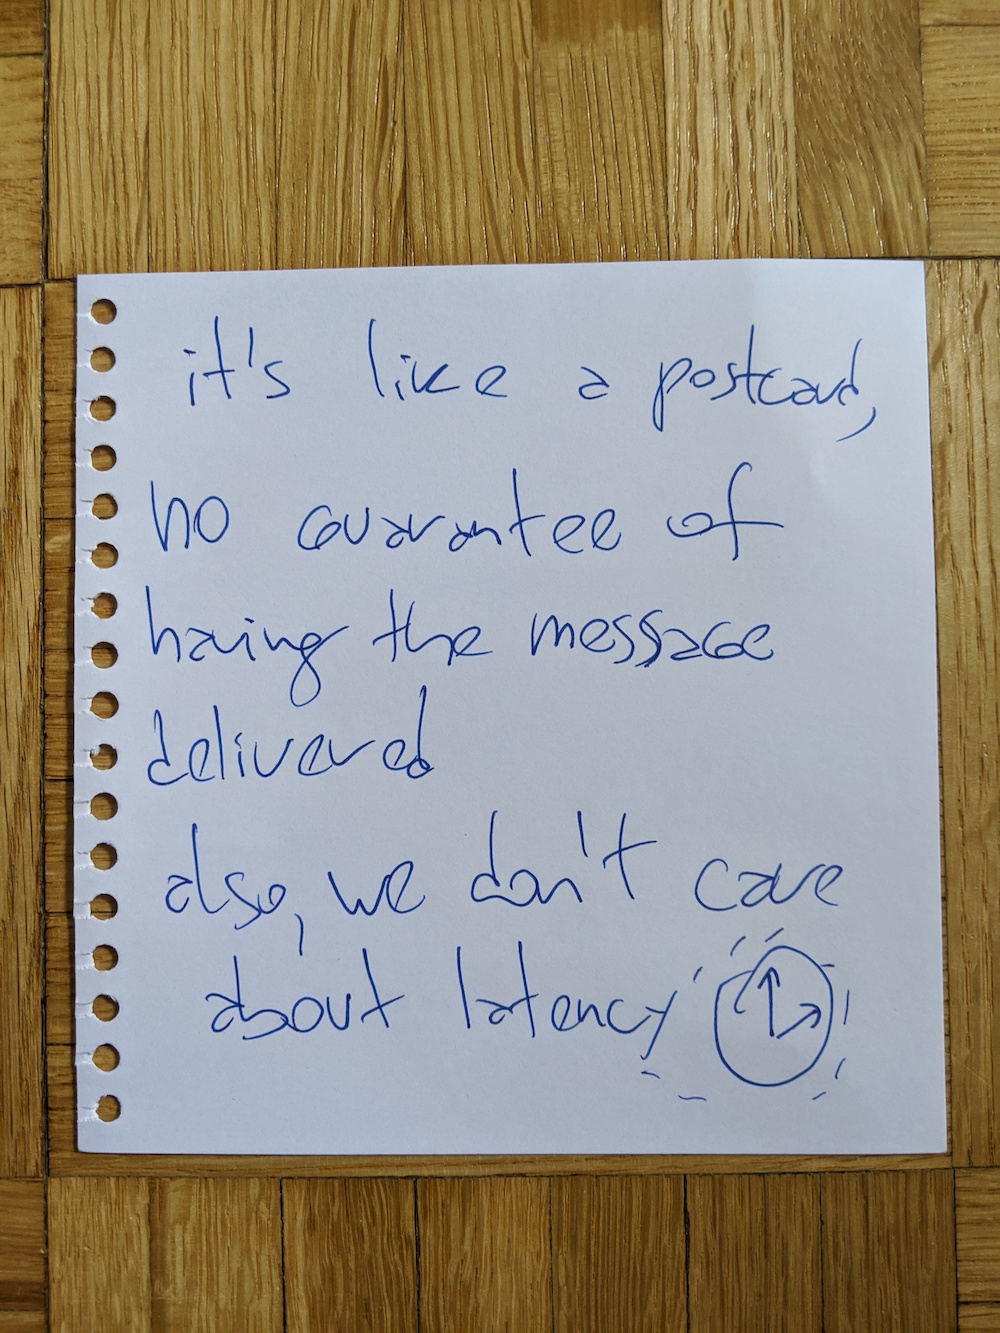 it's like a postcard,
no guarantee of
having the message
delivered
also, we don't care
about latency